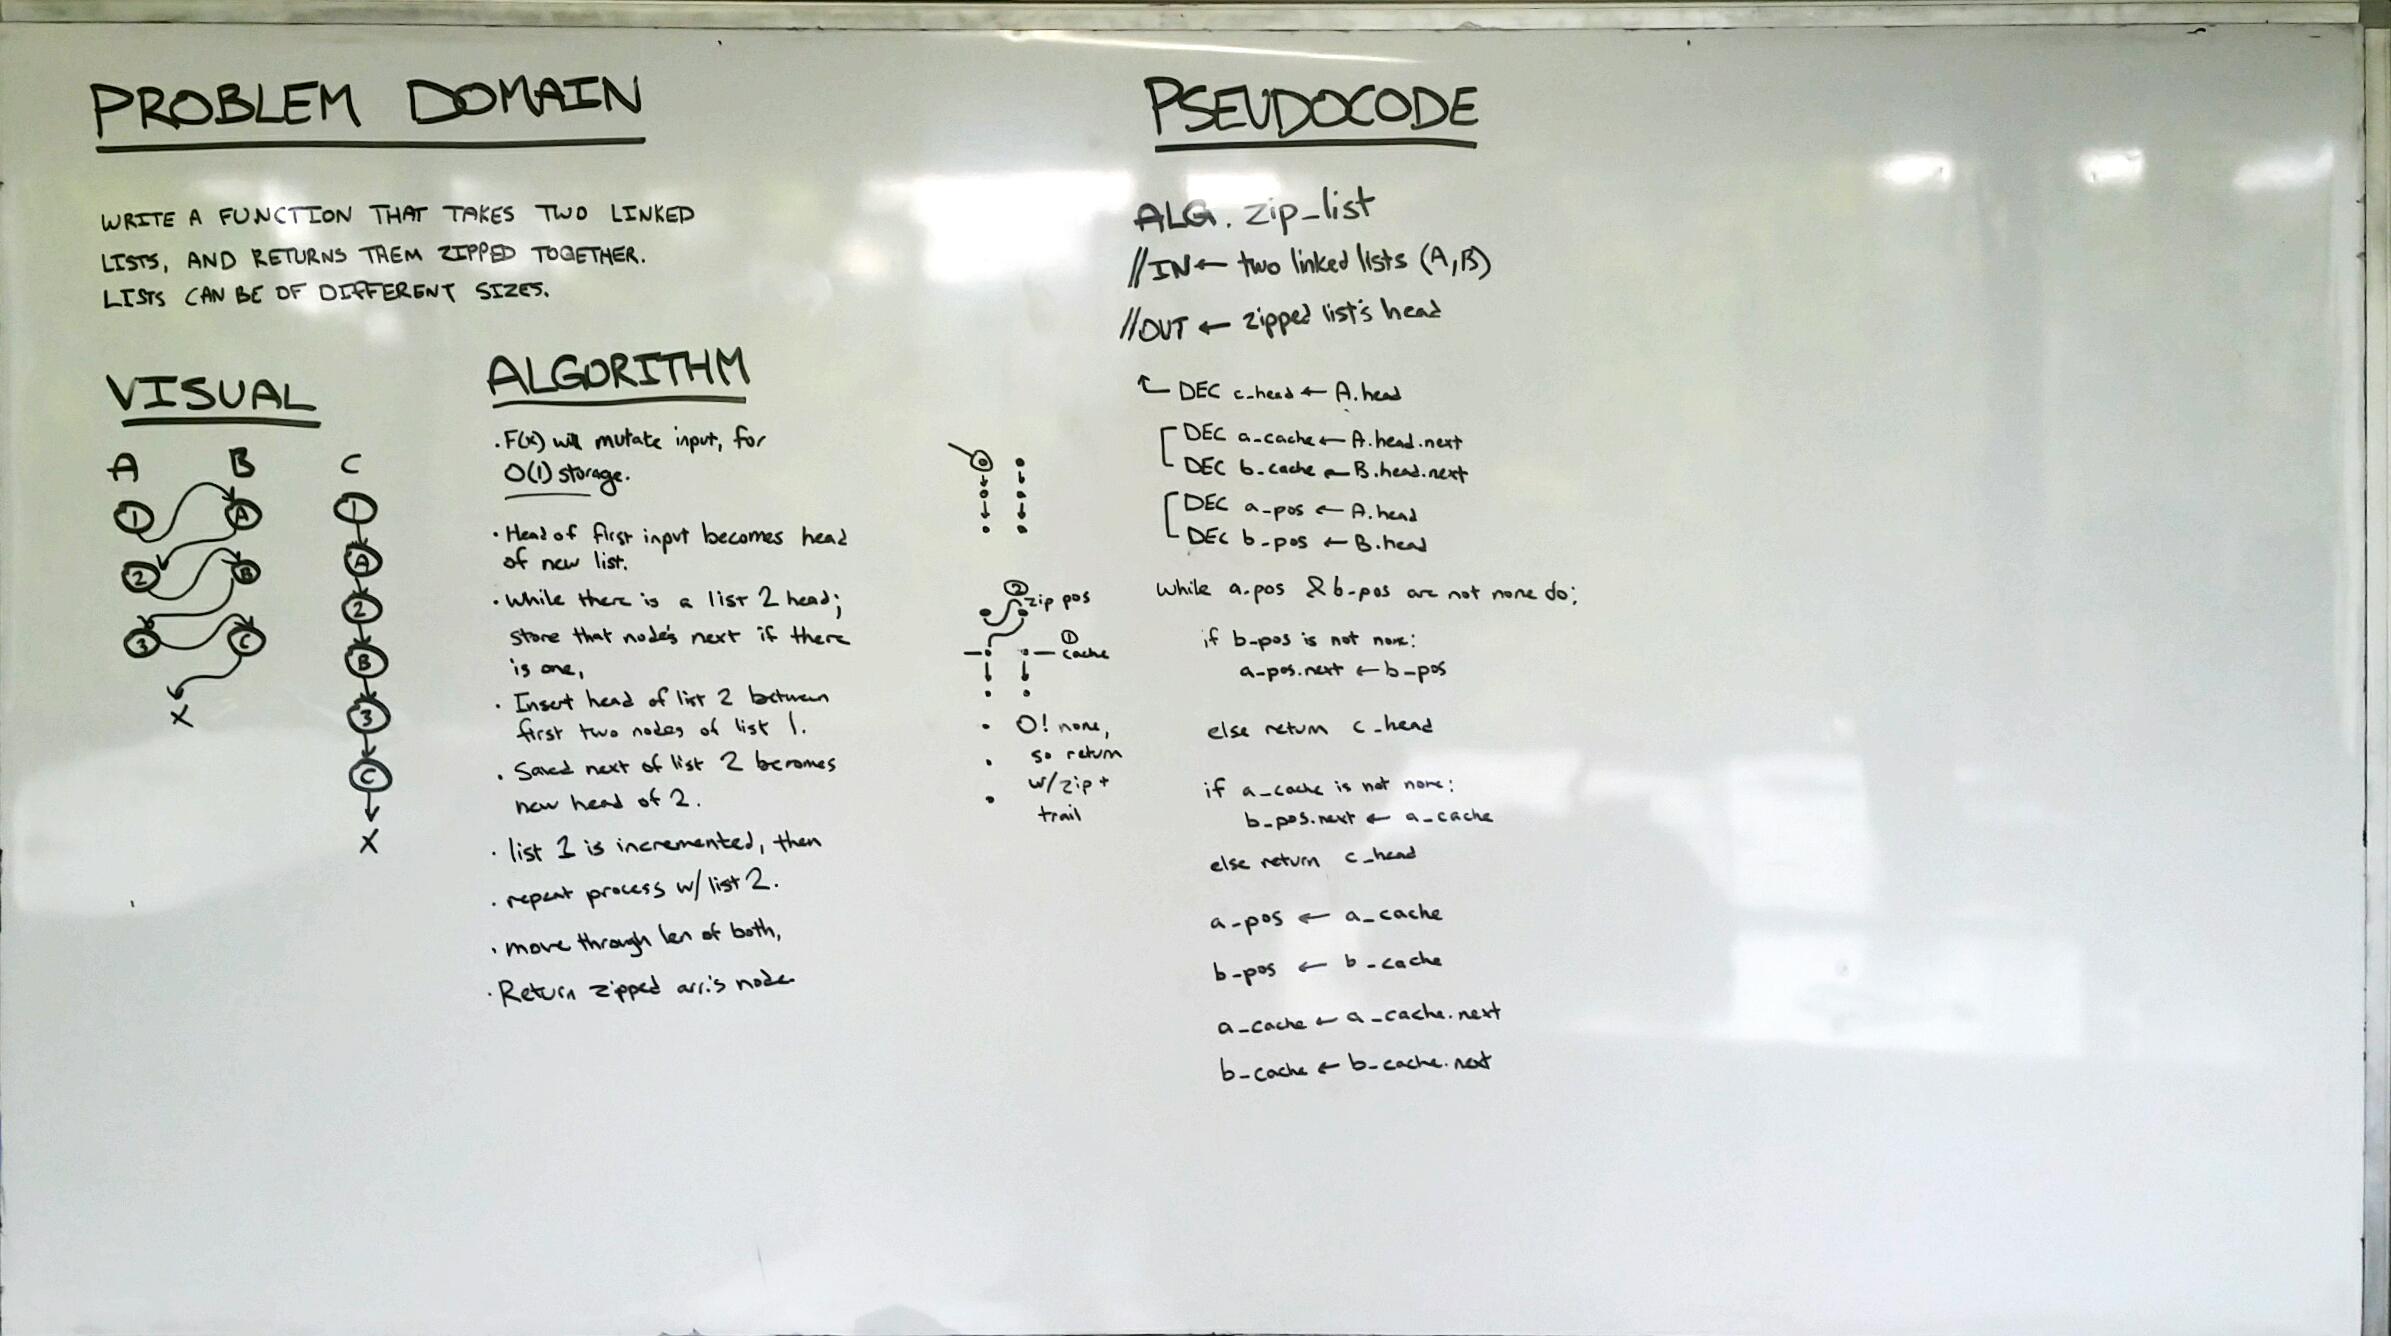 PROBLEM DOMAIN
WRITE A FUNCTION THAT TAKES TWO LINKED
LISTS, AND RETURNS THEM ZIPPED TOGETHER.
LISTS CAN BE OF DIFFERENT SIZES.
VISUAL
A B C
1 A 1
A
2 B 2
B
3 C 3
C
X
X
ALGORITHM
· F(x) will mutate input, for
O(1) storage.
· Head of first input becomes head
of new list.
· While there is a list 2 head;
store that node's next if there
is one,
· Insert head of list 2 between
first two nodes of list 1.
· Saved next of list 2 becomes
new head of 2.
· list 1 is incremented, then
· repeat process w/ list 2.
· move through len of both,
· Return zipped arr.'s node
②
zip pos
①
cache
O! none,
so return
w/ zip +
trail
PSEUDOCODE
ALG. zip_list
//IN ← two linked lists (A,B)
//OUT ← zipped list's head
DEC c_head ← A.head
DEC a_cache ← A.head.next
DEC b_cache ← B.head.next
DEC a_pos ← A.head
DEC b_pos ← B.head
while a.pos & b-pos are not none do:
if b-pos is not none:
a-pos.next ← b-pos
else return c_head
if a_cache is not none:
b_pos.next ← a_cache
else return c_head
a_pos ← a_cache
b-pos ← b_cache
a_cache ← a_cache.next
b_cache ← b_cache.next